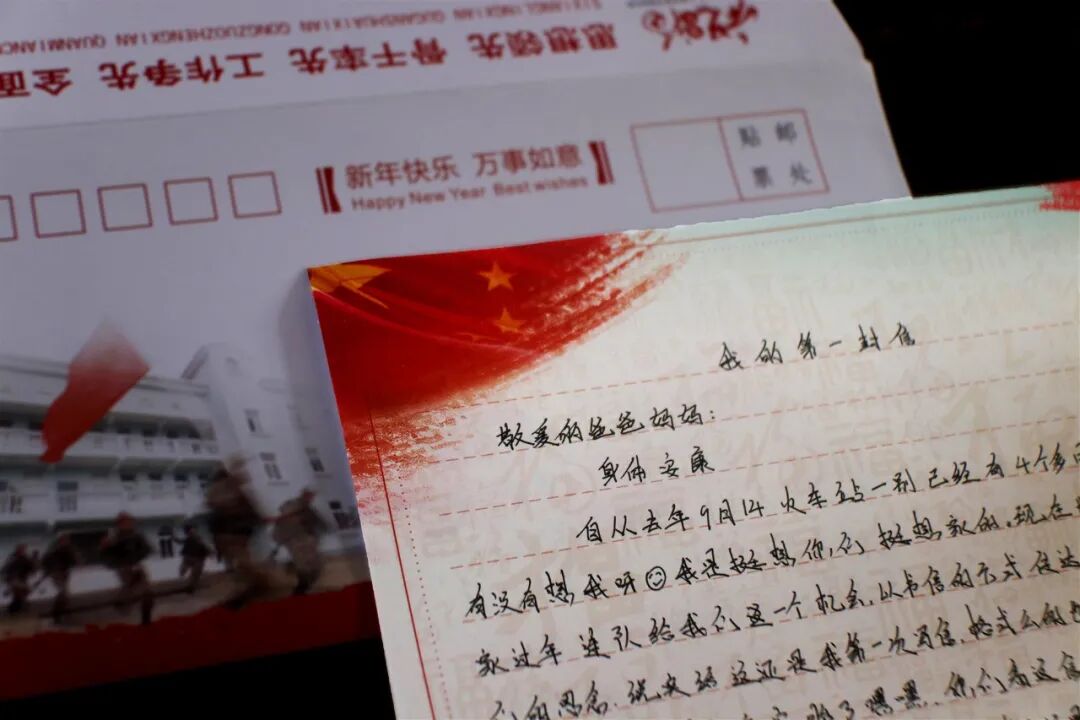 SIXIANGLINGXIAN GUGANSHUAIXIAN GONGZUOZHENGXIAN QUANMIANC
思想领先 骨干率先 工作争先 全面
新年快乐 万事如意
Happy New Year Best wishes
贴 邮
票 处
我的第一封信
敬爱的爸爸妈妈:
身体安康
自从去年9月14火车站一别已经有4个多
有没有想我呀☺我是挺想你们,挺想家的.现在
家过年 连队给我们这一个机会,从书信的方式
们的思念.说实话这还是我第一次写信.格式么
了嘿嘿.你们看这信